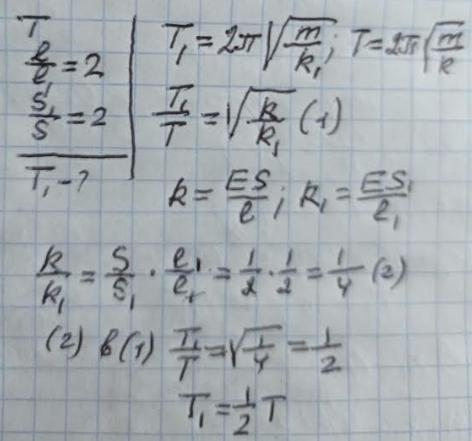 T
l/l₁ = 2
S₁/S = 2
T₁ - ?
T₁ = 2π√(m/k₁); T = 2π√(m/k)
T₁/T = √(k/k₁) (1)
k = ES/l; k₁ = ES₁/l₁
k/k₁ = S/S₁ · l₁/l = 1/2 · 1/2 = 1/4 (2)
(2) в (1) T₁/T = √(1/4) = 1/2
T₁ = 1/2 T